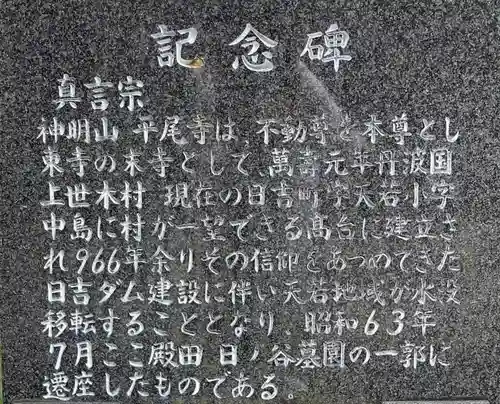 記念碑
真言宗
神明山 平尾寺は、不動尊を本尊とし
東寺の末寺として、萬壽元年丹波国
上世木村 現在の日吉町字天若小字
中島に村が一望できる高台に建立さ
れ966年余りその信仰をあつめてきた
日吉ダム建設に伴い天若地域が水没
移転することとなり、昭和63年
7月ここ殿田 日ノ谷墓園の一郭に
遷座したものである。